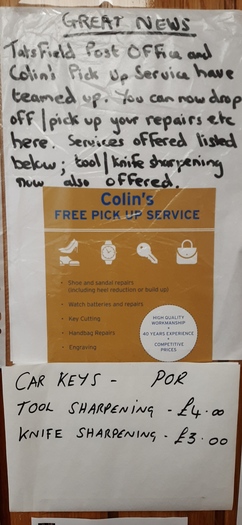 GREAT NEWS
Tatsfield Post Office and
Colin's Pick Up Service have
teamed up. You can now drop
off/pick up your repairs etc
here. Services offered listed
below; tool/knife sharpening
now also offered.
Colin's
FREE PICK UP SERVICE
• Shoe and sandal repairs
(including heel reduction or build up)
• Watch batteries and repairs
• Key Cutting
• Handbag Repairs
• Engraving
HIGH QUALITY
WORKMANSHIP
•
40 YEARS EXPERIENCE
•
COMPETITIVE
PRICES
CAR KEYS - POR
TOOL SHARPENING - £4.00
KNIFE SHARPENING - £3.00